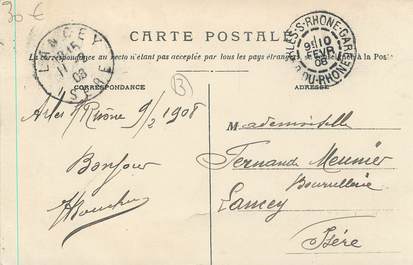 30 €
CARTE POSTALE
La correspondance au recto n'étant pas acceptée par tous les pays étrangers, se renseigner à la Poste
LANCEY
8 15
11
08
ISERE
ARLES-S-RHONE-GARE
9 10
FEVR
08
B. DU RHONE
CORRESPONDANCE
ADRESSE
3
Arles s/Rhône 9/2 1908
Bonjour
Mademoiselle
Fernande Meunier
Lancey
Isère